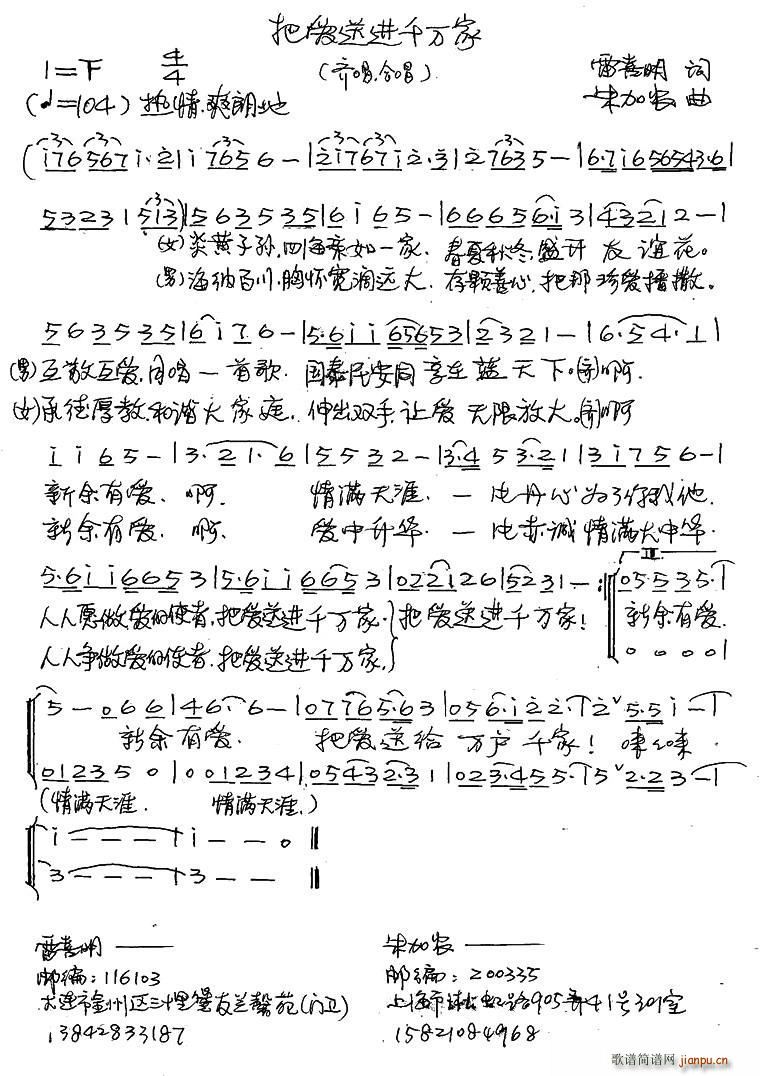 把爱送进千万家
1=F 4/4 (齐唱.合唱) 雷喜明 词
(♩=104) 热情.爽朗地 朱加农 曲
(i76567i·2|i7656-|2i767i2·3|27635-|6·7i656543·6|
53231513)|5635 35|6i65-|66656·i3|43212-|
(女)炎黄子孙,四海亲如一家. 春夏秋冬,盛开友谊花。
(男)海纳百川,胸怀宽阔远大. 存颗善心,把那珍爱播撒。
5635 35|6i76-|5·6ii65653|2321-|6·54·1|
(男)互敬互爱,同唱一首歌. 国泰民安同享在蓝天下。(齐)啊.
(女)承德厚教,和谐大家庭. 伸出双手,让爱无限放大。(齐)啊
ii65-|3·21·6|5532-|3·453·21|3i756-|
新余有爱. 啊. 情满天涯. 一片丹心为了你我他.
新余有爱. 啊. 爱中升华. 一片赤诚情满大中华.
5·6ii6653|5·6ii6653|022126|5231-:‖0553 5·|
人人愿做爱的使者,把爱送进千万家.}把爱送进千万家! 新余有爱.
人人争做爱的使者,把爱送进千万家,} 0 0 0 0|
5-066|46·6-|07765·63|056·i22·|2ˇ5·5i-|
新余有爱. 把爱送给万户千家! 咪咪.
012350|001234|05432·31|023·455·|5ˇ2·23-|
(情满天涯. 情满天涯.)
i---|i--0‖
3---|3--‖
雷喜明—— 朱加农——
邮编:116103 邮编:200335
大连市金州区三十里堡友兰馨苑(门卫) 上海市 虹路905弄41号301室
13842833187 15821084968
歌谱简谱网 jianpu.cn